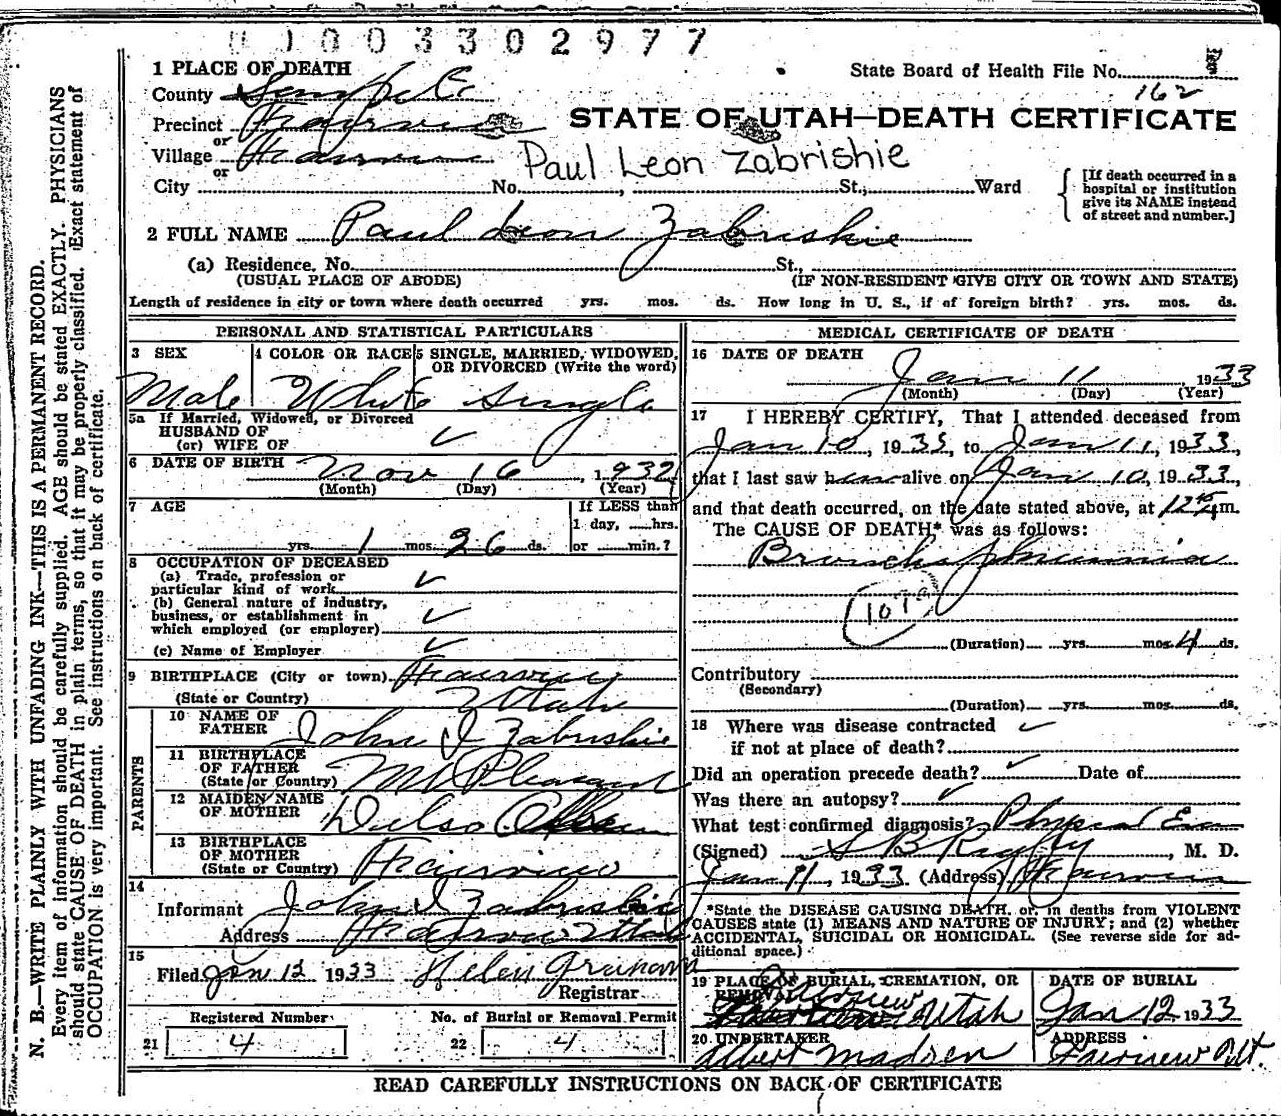 003302977
1 PLACE OF DEATH
State Board of Health File No.
162
County Sanpete
STATE OF UTAH—DEATH CERTIFICATE
Precinct Fairview
or
Village Fairview
or
Paul Leon Zabrishie
City No. , St., Ward
[If death occurred in a hospital or institution give its NAME instead of street and number.]
2 FULL NAME Paul Leon Zabriskie
(a) Residence, No. St.,
(USUAL PLACE OF ABODE) (IF NON-RESIDENT GIVE CITY OR TOWN AND STATE)
Length of residence in city or town where death occurred yrs. mos. ds. How long in U. S., if of foreign birth? yrs. mos. ds.
PERSONAL AND STATISTICAL PARTICULARS
3 SEX 4 COLOR OR RACE 5 SINGLE, MARRIED, WIDOWED, OR DIVORCED (Write the word)
Male White Single
5a If Married, Widowed, or Divorced
HUSBAND OF
(or) WIFE OF
6 DATE OF BIRTH Nov 16, 1932
(Month) (Day) (Year)
7 AGE
If LESS than
1 day, hrs.
yrs. 1 mos. 26 ds. or min.?
8 OCCUPATION OF DECEASED
(a) Trade, profession or
particular kind of work
(b) General nature of industry,
business, or establishment in
which employed (or employer)
(c) Name of Employer
9 BIRTHPLACE (City or town) Fairview
(State or Country) Utah
PARENTS
10 NAME OF FATHER John I Zabriskie
11 BIRTHPLACE OF FATHER
(State or Country) Mt Pleasant
12 MAIDEN NAME OF MOTHER
13 BIRTHPLACE OF MOTHER
(State or Country) Fairview
14
Informant John I Zabriskie
Address Fairview Utah
15
Filed Jan 12 1933 Helen Graham
Registrar
Registered Number No. of Burial or Removal Permit
21 4 22 4
MEDICAL CERTIFICATE OF DEATH
16 DATE OF DEATH
Jan 11 1933
(Month) (Day) (Year)
17 I HEREBY CERTIFY, That I attended deceased from
Jan 10, 1933, to Jan 11, 1933,
that I last saw him alive on Jan 10, 1933,
and that death occurred, on the date stated above, at m.
The CAUSE OF DEATH* was as follows:
Broncho pneumonia
107a
(Duration) yrs. mos. 4 ds.
Contributory
(Secondary)
(Duration) yrs. mos. ds.
18 Where was disease contracted
if not at place of death?
Did an operation precede death? Date of
Was there an autopsy?
What test confirmed diagnosis? Physical Ex
(Signed) , M. D.
Jan 11, 1933 (Address) Fairview
*State the DISEASE CAUSING DEATH, or, in deaths from VIOLENT
CAUSES state (1) MEANS AND NATURE OF INJURY; and (2) whether
ACCIDENTAL, SUICIDAL OR HOMICIDAL. (See reverse side for ad-
ditional space.)
19 PLACE OF BURIAL, CREMATION, OR REMOVAL DATE OF BURIAL
Fairview Utah Jan 12 1933
20 UNDERTAKER ADDRESS
Albert Madsen Fairview Ut.
READ CAREFULLY INSTRUCTIONS ON BACK OF CERTIFICATE
N. B.—WRITE PLAINLY WITH UNFADING INK—THIS IS A PERMANENT RECORD.
Every item of information should be carefully supplied. AGE should be stated EXACTLY. PHYSICIANS
should state CAUSE OF DEATH in plain terms, so that it may be properly classified. Exact statement of
OCCUPATION is very important. See instructions on back of certificate.